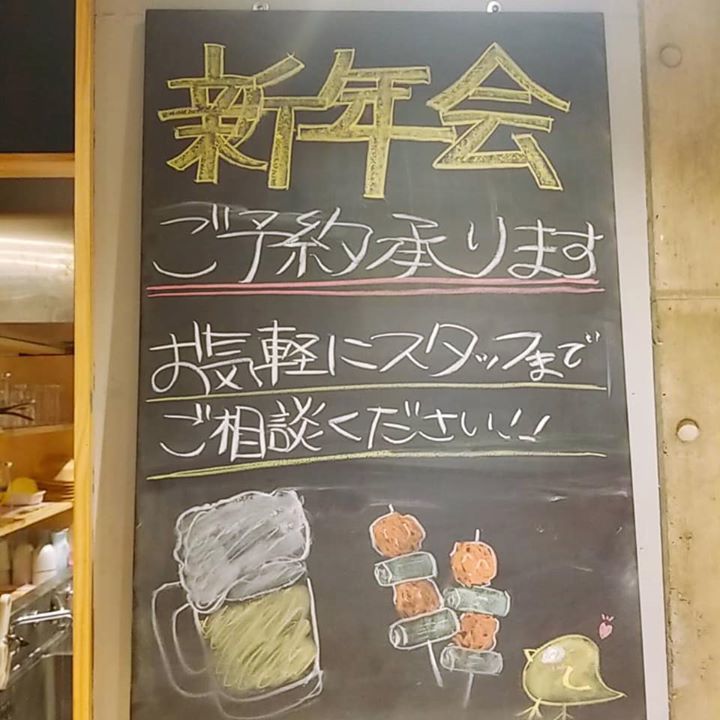 新年会
ご予約承ります
お気軽にスタッフまで
ご相談ください!!